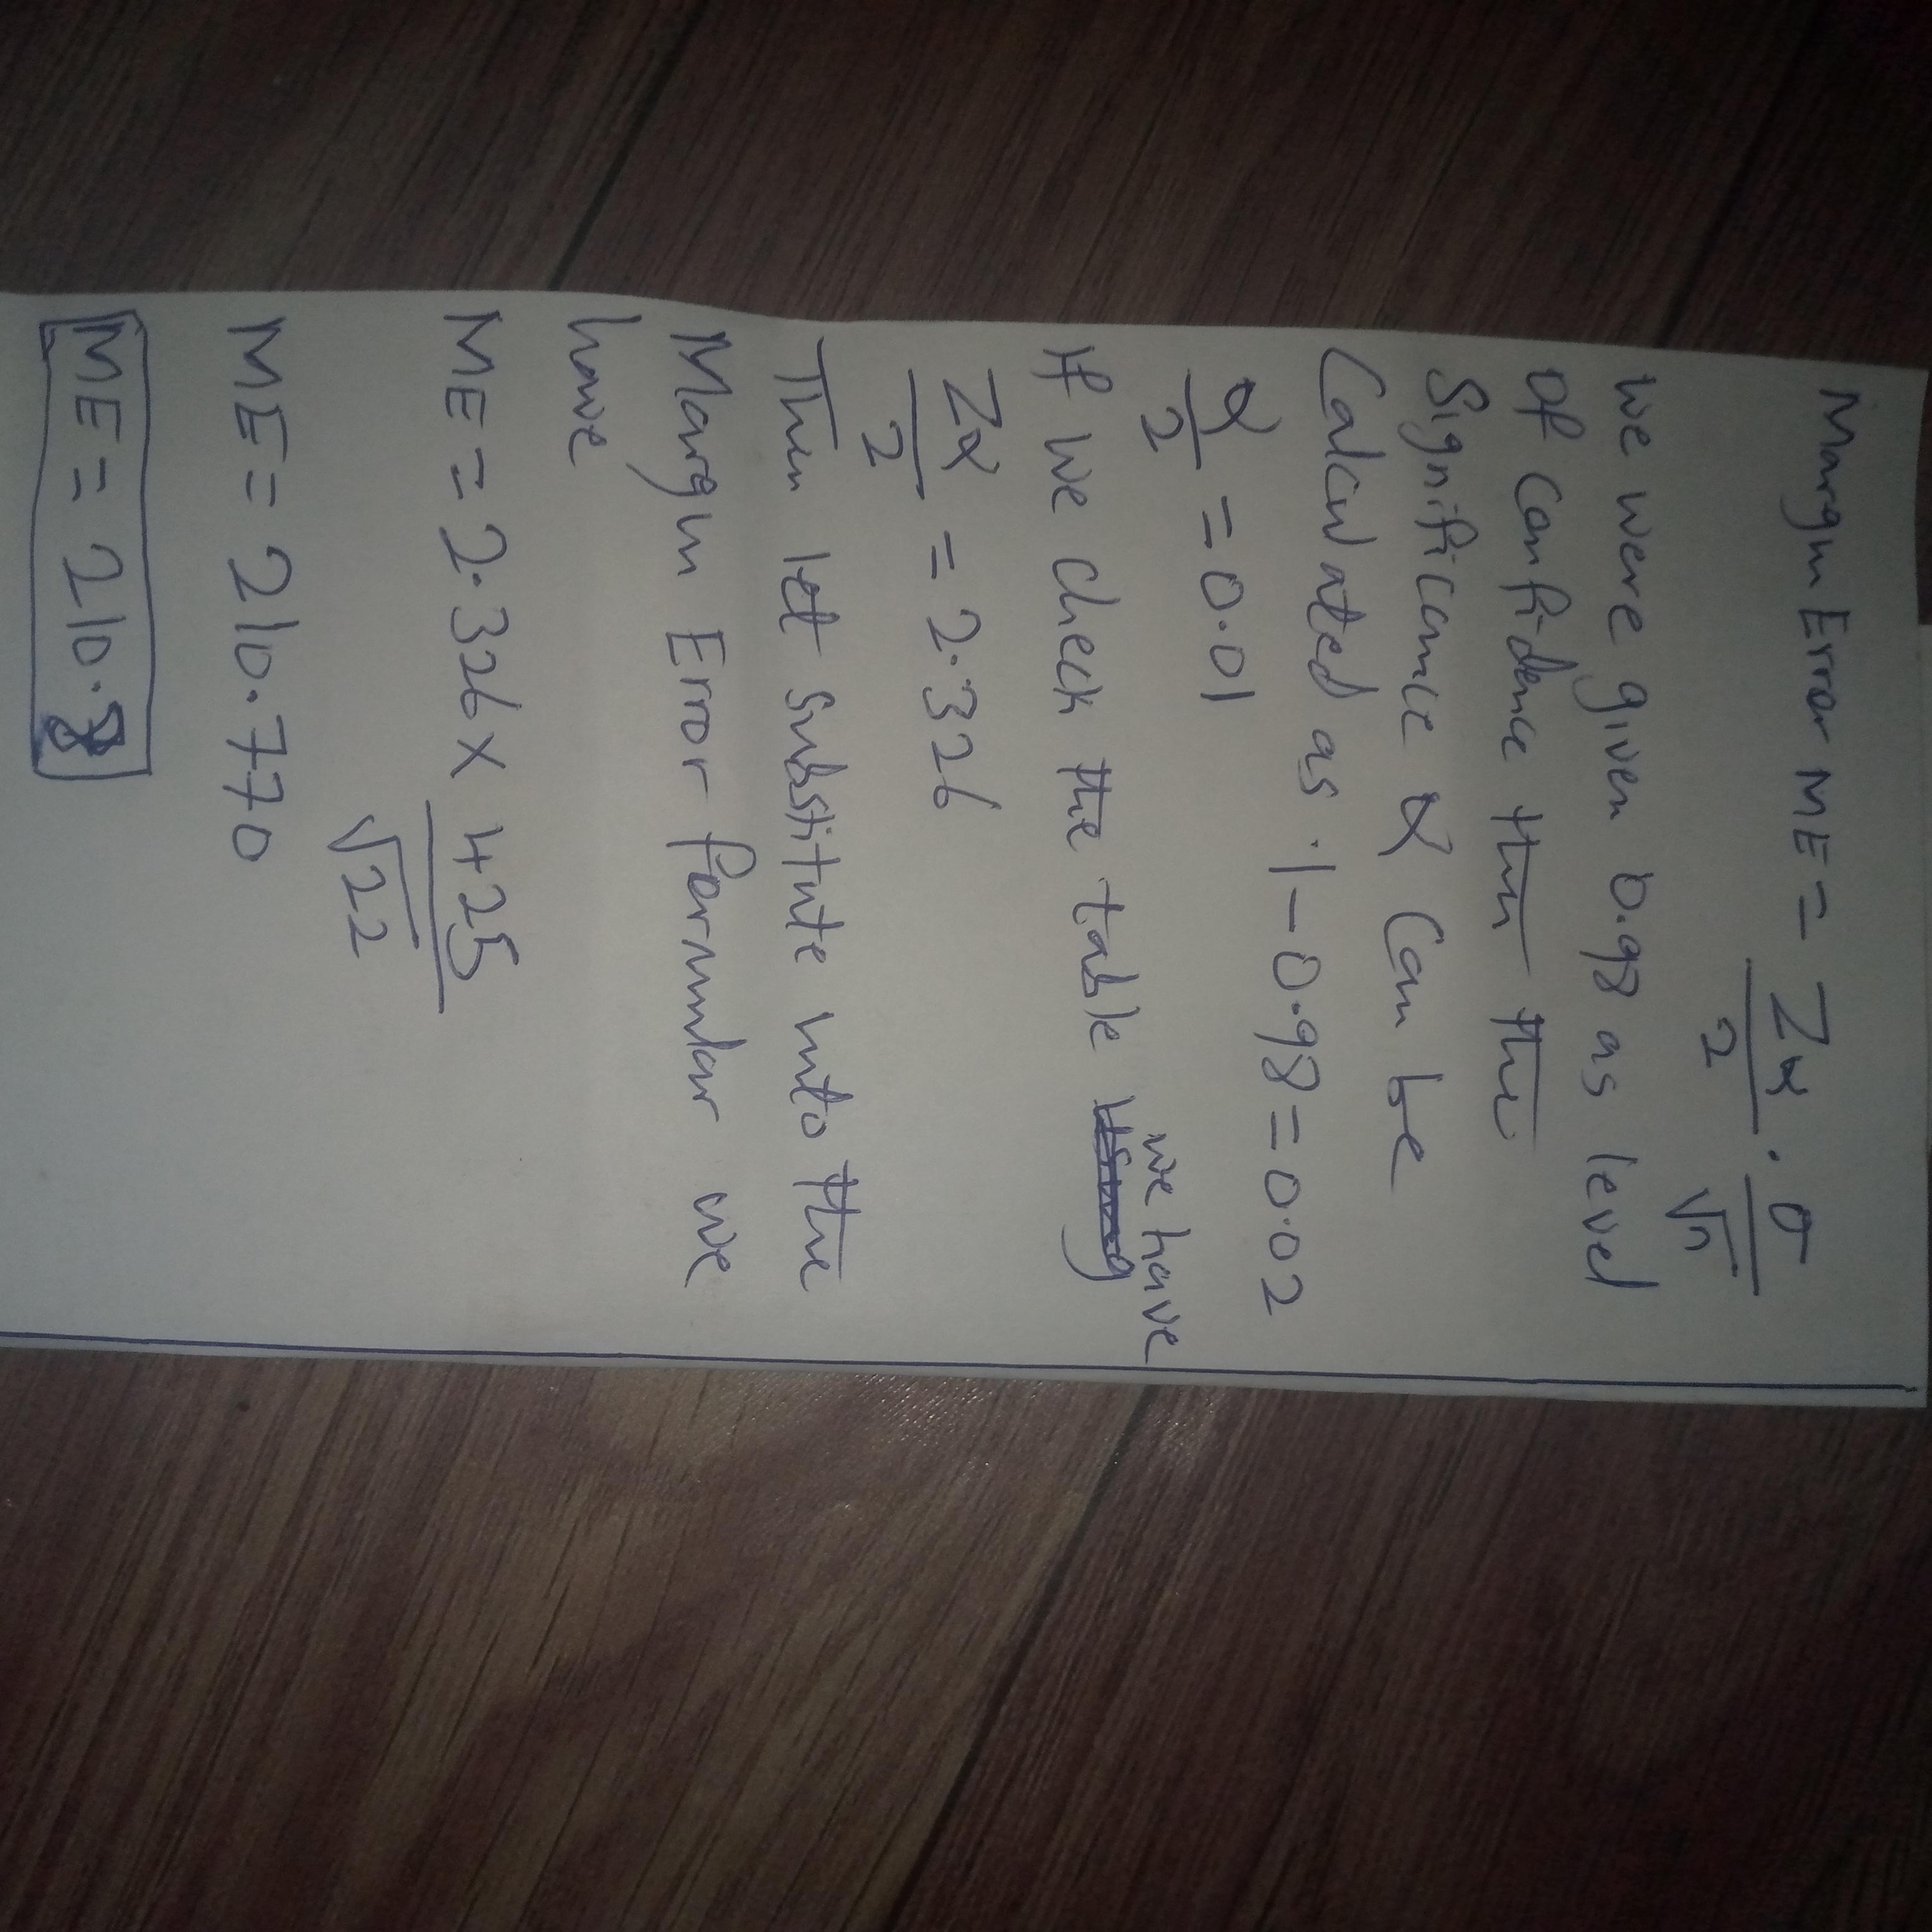 Margin Error ME = Zα/2 · σ/√n
We were given 0.98 as level
Of Confidence then the
Significance α Can be
Calculated as 1 - 0.98 = 0.02
α/2 = 0.01
If we check the table we have
Zα/2 = 2.326
Then let substitute into the
Margin Error formular we
have
ME = 2.326 × 425/√22
ME = 210.770
ME = 210.8